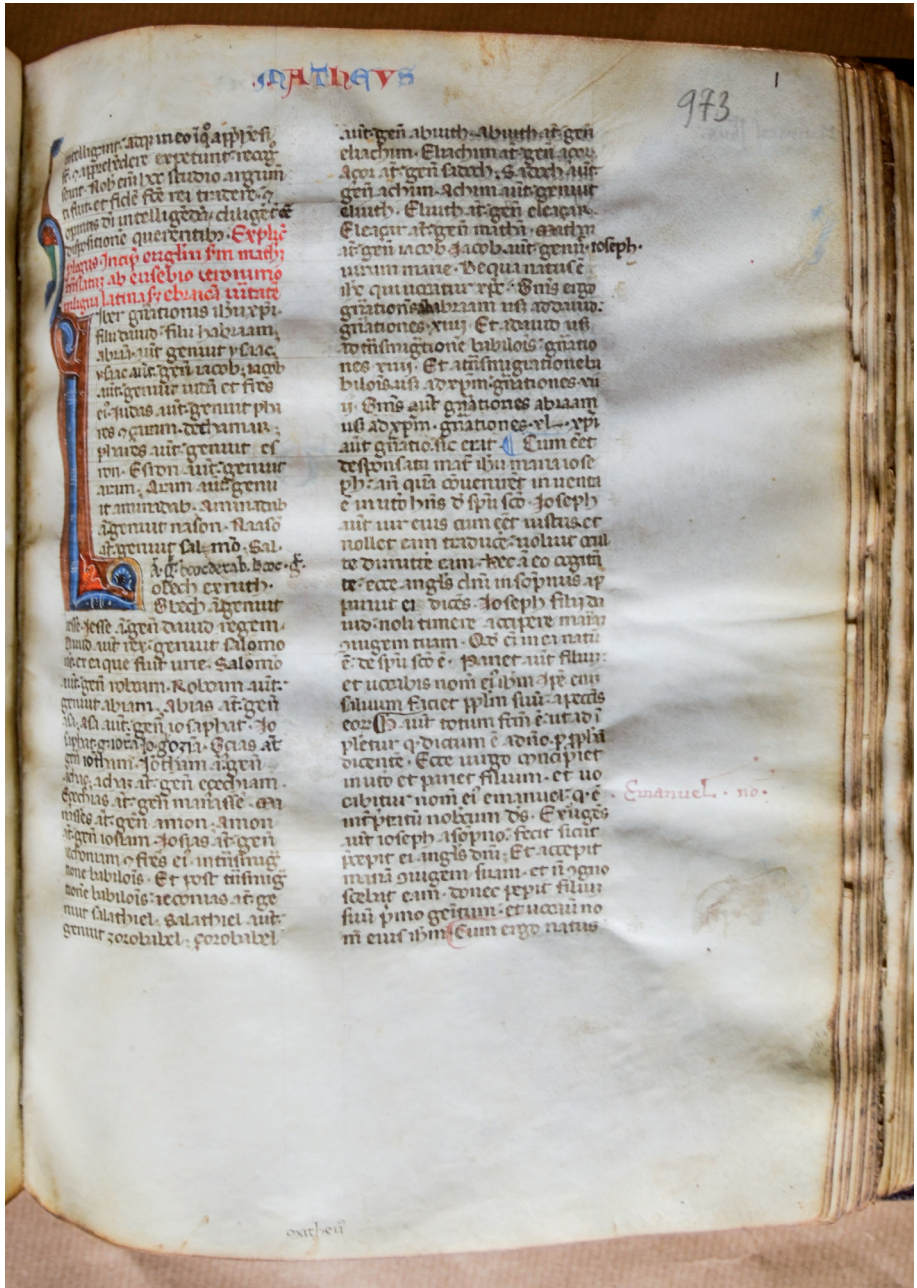 MATHEVS
973
intelligunt atqꝫ in eo id qꝫ app̄he̅si
sūt ⁊ app̄rehe̅dere expetunt recog
noscunt. Nob̄ eni̅ hoc studio argum̄
ti fuit. et fide̅ fc̄e rei trade̅. ⁊
opa̅tis di̅ intellige̅da̅ dilige̅te̅
dispositione̅ querentibꝫ. Explic̄
plogus Incip̄ ew̄gliu̅ sm̄ mathm̄
translatu̅ ab eusebio ieronimo
liber gn̄ationis ih̄u xp̄i.
filii dauid. filii habraam.
abraā aut̄ genuit ysaac.
ysaac aut̄ gen̄ iacob. iacob
aut̄ genuit iuda̅ et fr̄es
ei᷒. Judas aut̄ genuit pha
res ⁊ çaram. de thamar.
phares aut̄ genuit es
ron. Esron aut̄ genuit
aram. Aram aut̄ genu
it aminadab. aminadab
ā genuit nason. Naaso̅
at̄ genuit salmō. Sal.
obech ex ruth.
Obech ā genuit
iesse. Jesse ā gen̄ dauid regem.
Dauid aut̄ rex genuit salomo
ne̅ ex ea que fuit urie. Salomō
aut̄ gen̄ roboam. Roboam aut̄
genuit abiam. abias at̄ gen̄
asa. asa aut̄ gen̄ iosaphat. Jo
saphat g̅ iora̅ Jo g̅ ozia̅. Ozias at̄
gen̄ iothan. Jotham ā gen̄
achaz. achaz at̄ gen̄ ezechiam.
Ezechias at̄ gen̄ manasse. Ma
nasses at̄ gen̄ amon. Amon
at̄ gen̄ iosiam. Josias at̄ gen̄
iechoniam ⁊ fr̄es ei᷒. in tn̄smig̅
tione babilois̄. Et post tn̄smig̅
tione̅ babilois̄. ieconias at̄ ge
nuit salathiel. Salathiel aut̄
genuit zorobabel. çorobabel
aut̄ gen̄ abiuth. Abiuth at̄ gen̄
eliachim. Eliachim at̄ gen̄ açor
Açor at̄ gen̄ sadoch. Sadoch aut̄
gen̄ achim. Achim aut̄ genuit
eliuth. Eliuth at̄ gen̄ eleaçar.
Eleaçar at̄ gen̄ mathā. Mathā
at̄ gen̄ iacob. Jacob aut̄ genuī. ioseph.
uirum marie. De qua natus ē
ih̄c qui uocatur xp̄c. Om̄s ergo
gn̄ationes abraam usꝫ ad dauid.
gn̄ationes. xiiii. Et a dauid usꝫ
ad tn̄smig̅tione̅ babilois̄ gn̄atio
nes xiiii. Et a tn̄smigratione ba
bilois̄ usꝫ ad xp̄m gn̄ationes xii
ii. Om̄s aut̄ gn̄ationes abraam
usꝫ ad xp̄m. gn̄ationes. xl. xp̄i
aut̄ gn̄atio. sic erat. ¶ Cum eēt
desponsata mat̄ ih̄u maria iose
ph. an̄ qua̅ co̅uenire̅t inuenta
ē in ut̄o hn̄s d̄ sp̄u sc̄o. Joseph
aut̄ uir eius cum eēt iustus et
nollet eam traduce̅. uoluit occul
te dimitt̄e eam. hec ā eo cogita̅
te. ecce angl̄s dn̄i in sop̄nis ap
paruit ei dicēs. Joseph filii da
uid. noli timere accipere maria̅
ɔiugem tuam. Qd̄ eī in ea natu̅
ē. de sp̄u sc̄o ē. Pariet aut̄ filiu̅.
et uocabis nom̄ ei᷒ ih̄m. Ip̄e eni̅
saluum faciet pp̄lm suu̅. a pecc̄is
eoꝝ. Hͦ aut̄ totum fc̄m ē. ut ad i̅
pletur q̇ dictum ē a dn̄o. p̱ ꝓph̄a̅
dicente̅. Ecce uirgo concipiet
in ut̄o et pariet filium. et uo
cabitur nom̄ ei᷒ emanuel. q̇ ē.
int̄p̄tatu̅ nobiscum ds̄. Exurge̅s
aut̄ ioseph a sop̄no. fecit sicut
p̄cepit ei angl̄s dn̄i. Et accepit
maria̅ ɔiugem suam. et n̄ ɔgno
scebat eam. donec pep̱it filiu̅
suu̅ p̱mo genitum. et uocau̅ no
m̄ eius ih̄m ¶ Cum ergo natus
Emanuel. no.